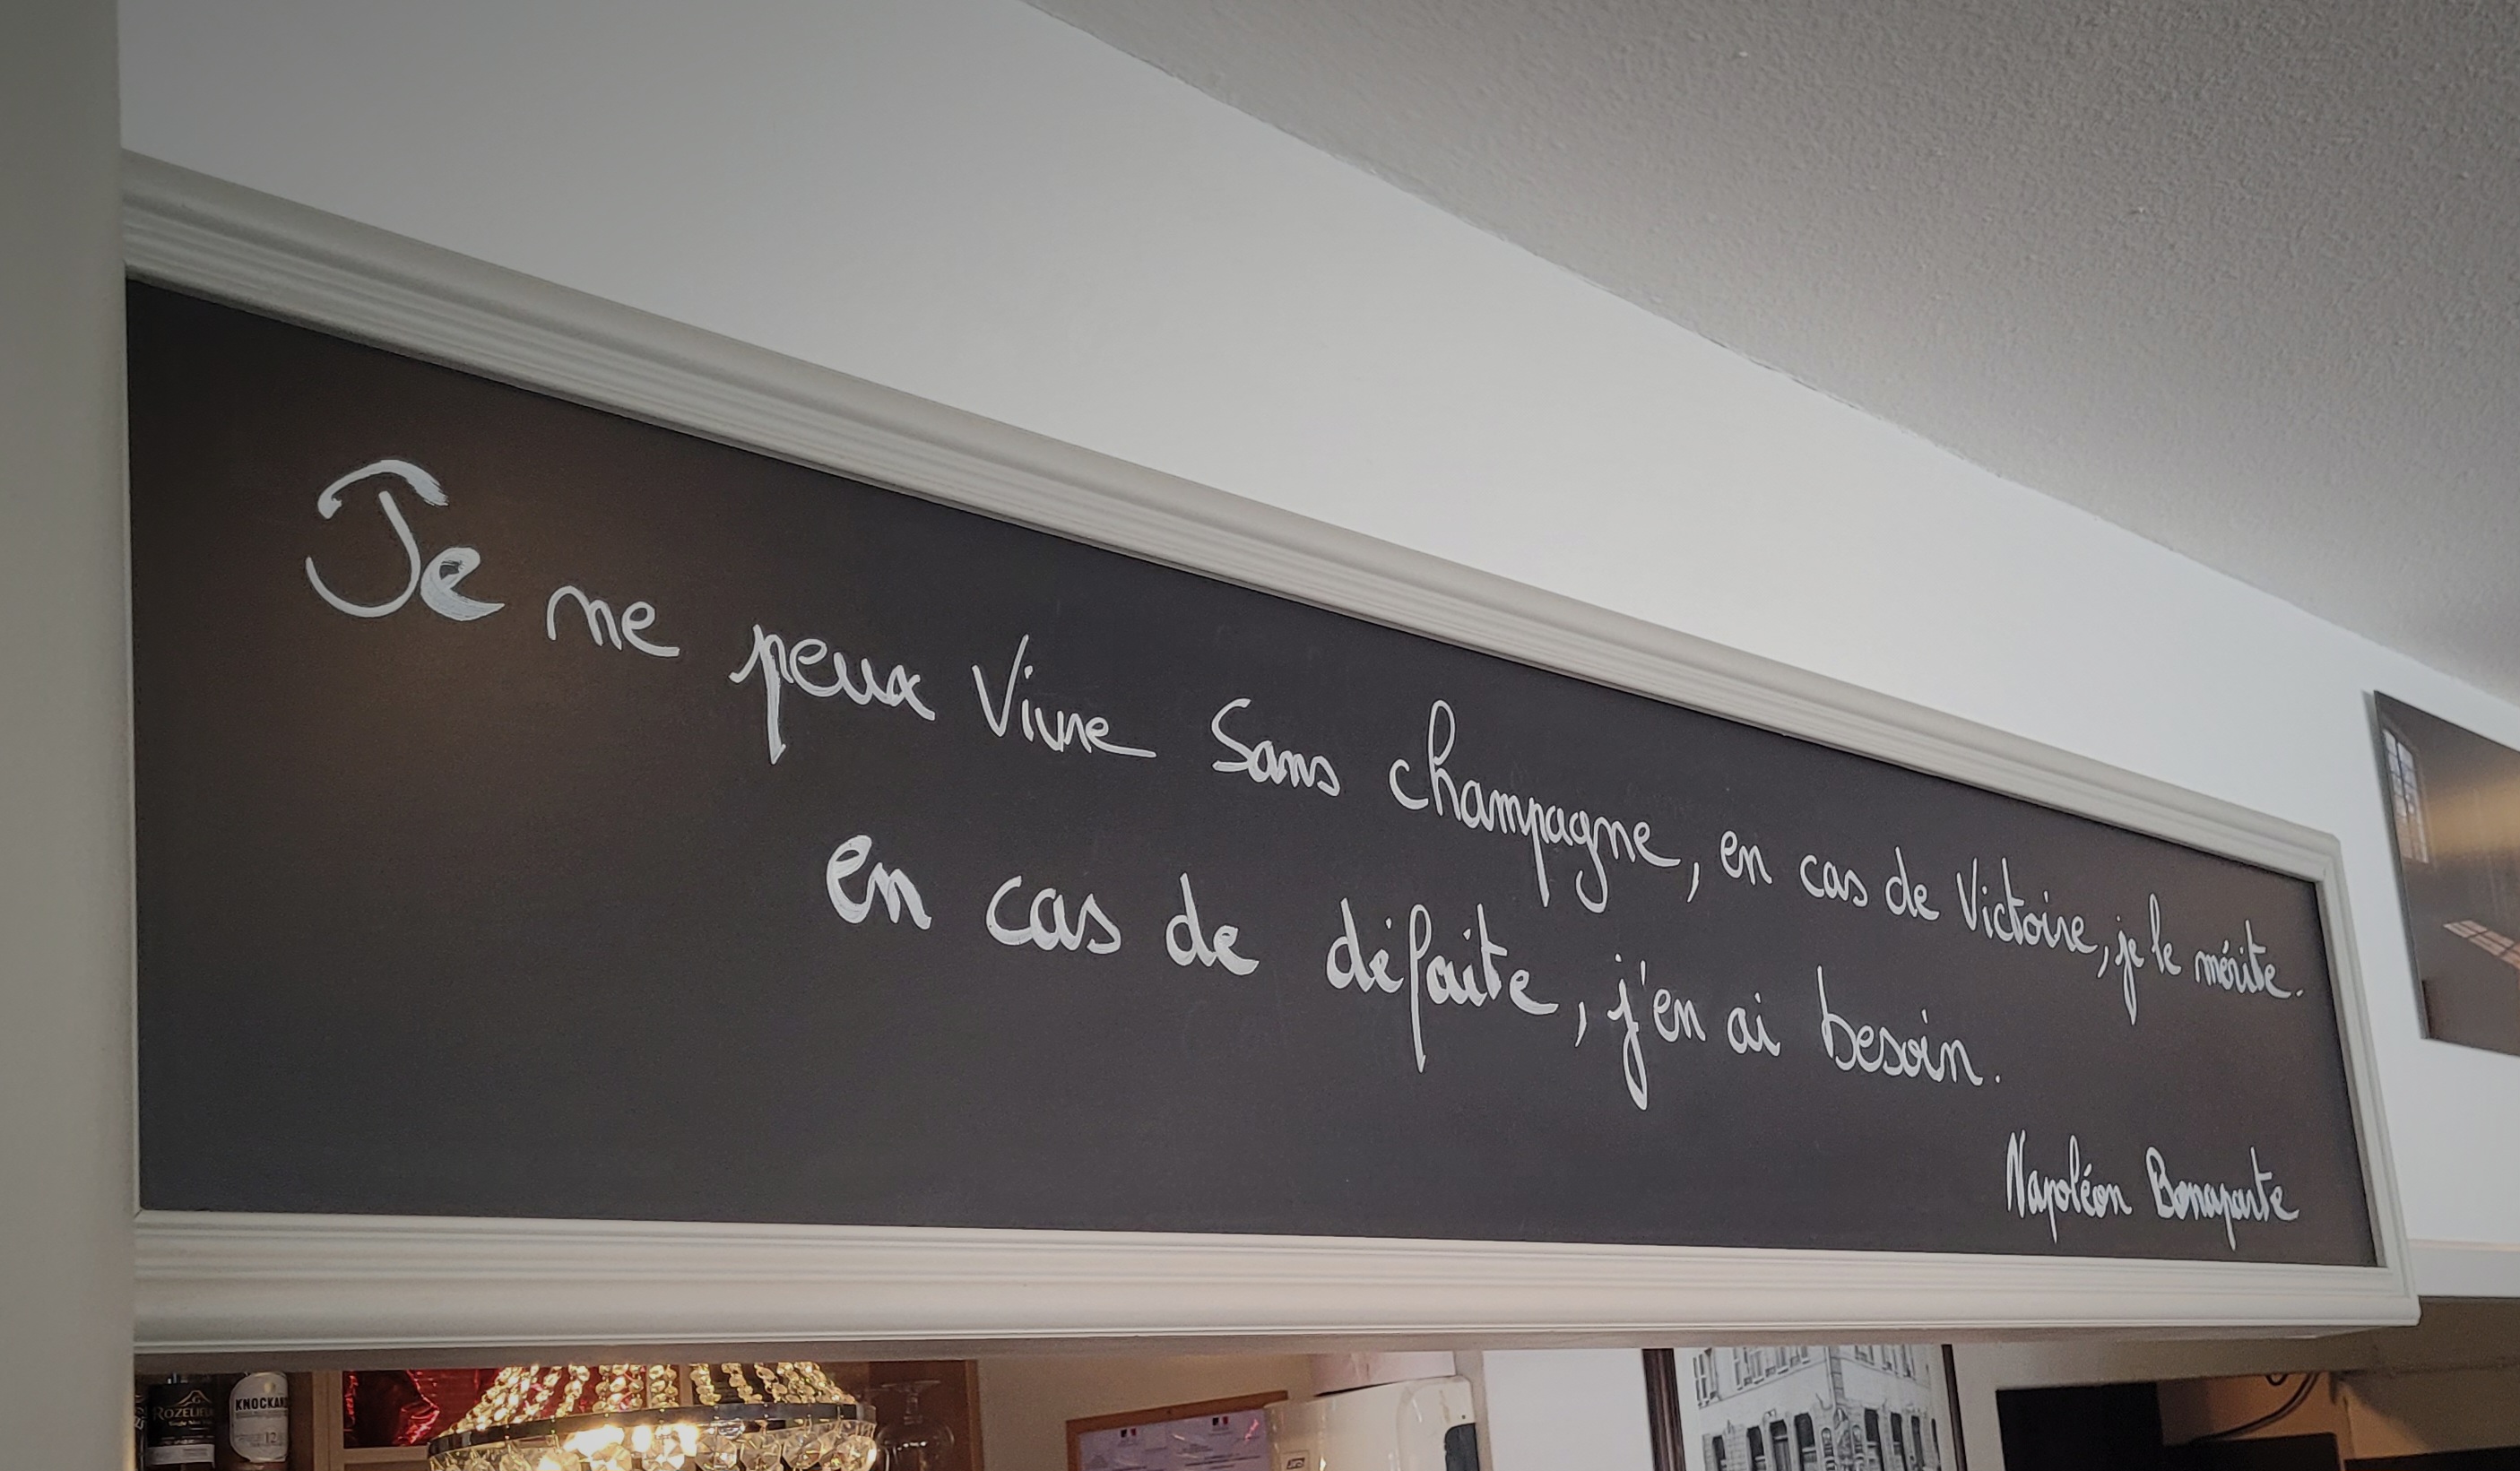 Je ne peux Vivre Sans champagne, en cas de Victoire, je le mérite.
en cas de défaite, j'en ai besoin.
Napoléon Bonaparte
ROZELIEU
KNOCKAN
12